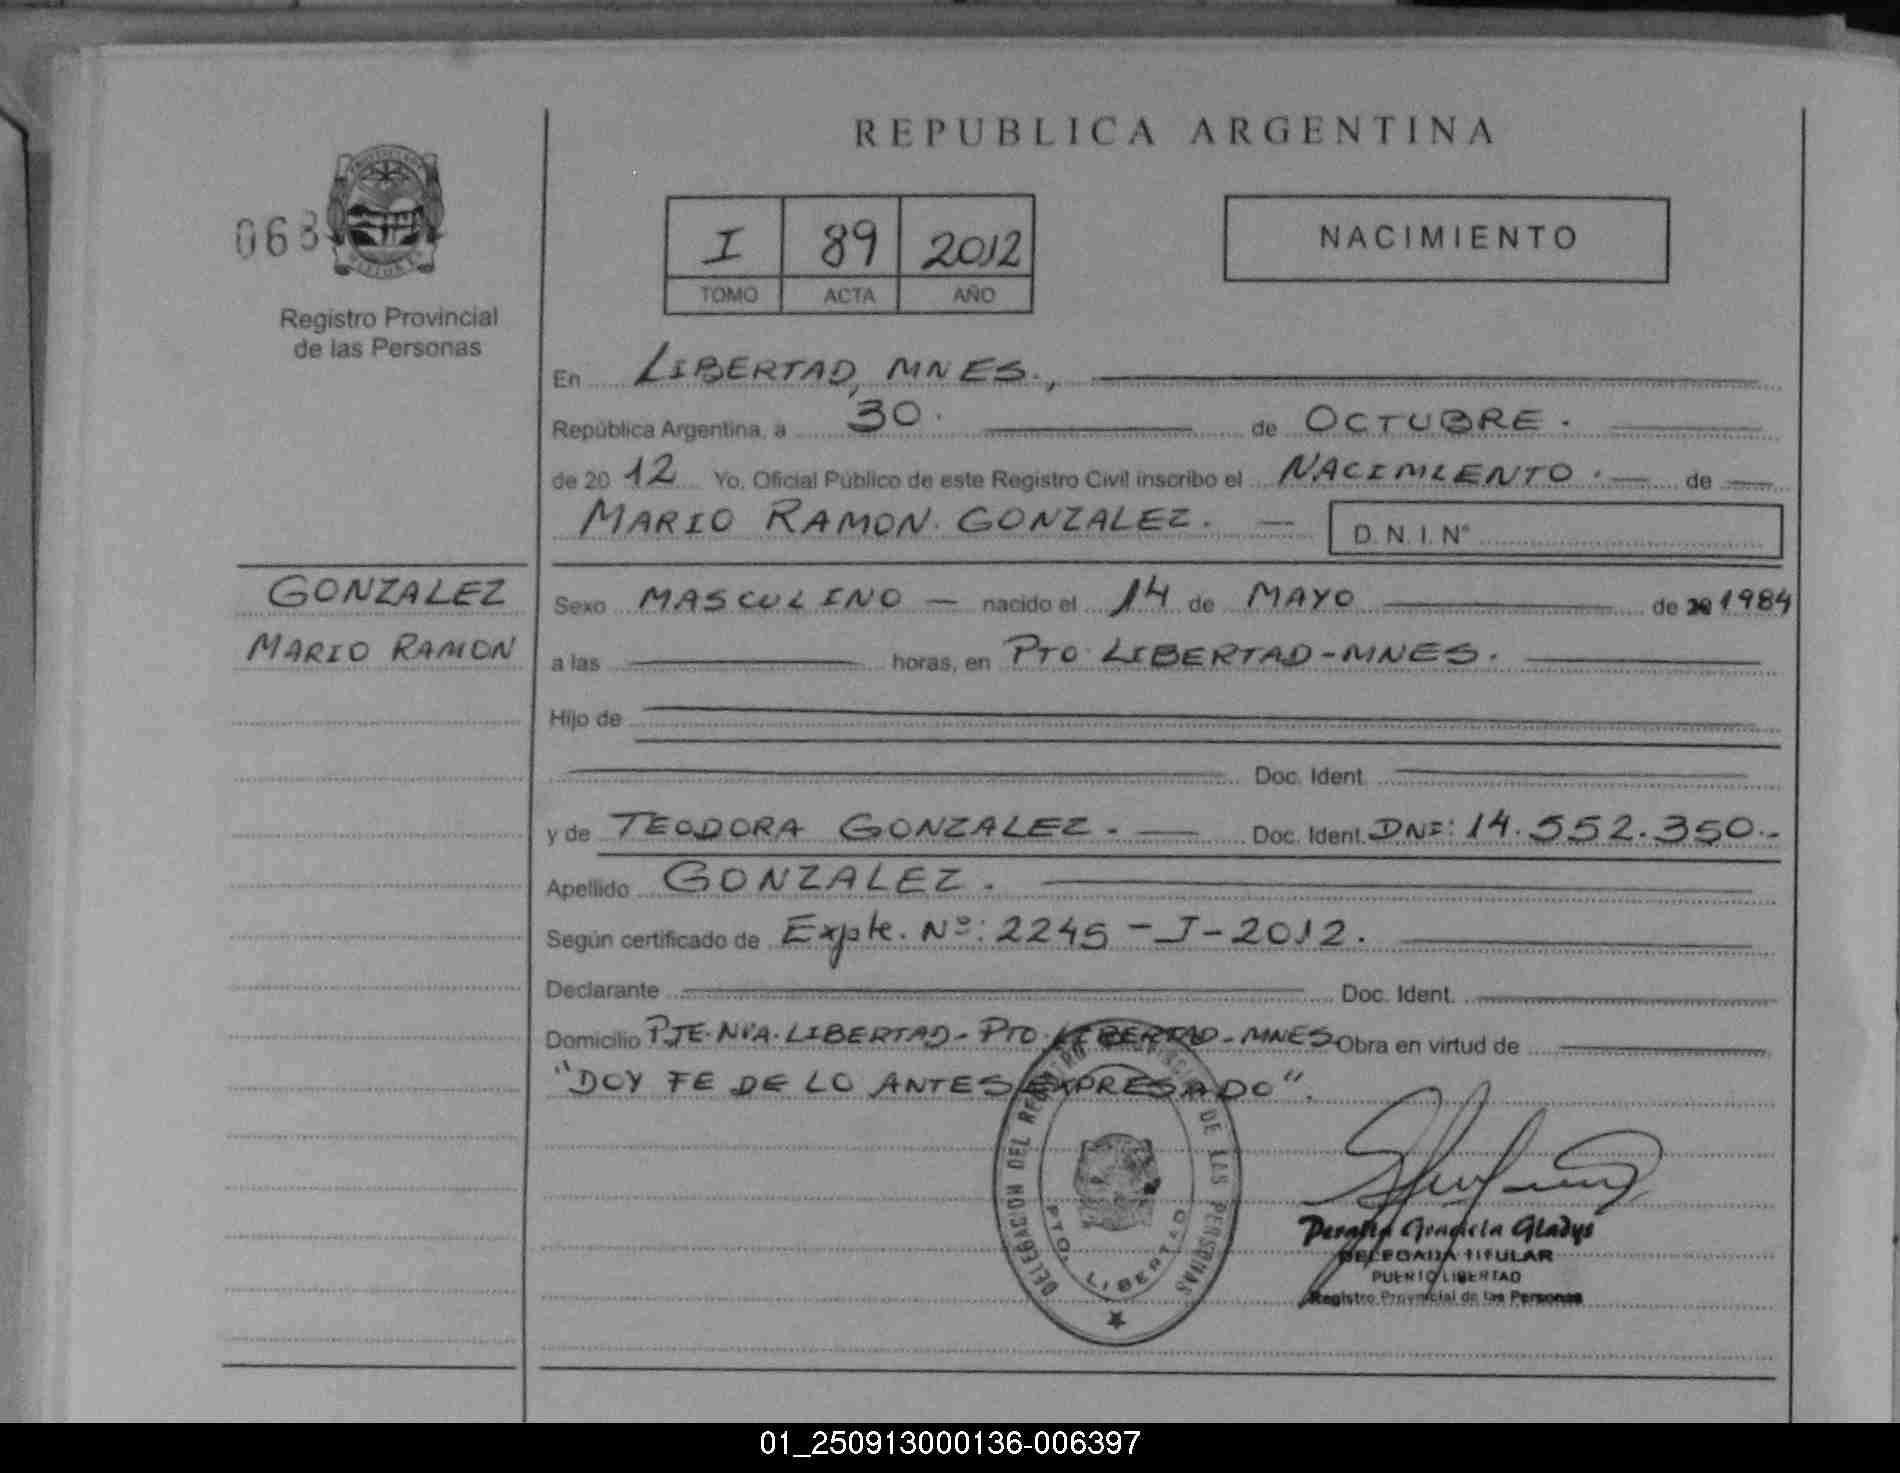 REPUBLICA ARGENTINA
063
Registro Provincial
de las Personas
I 89 2012
TOMO ACTA AÑO
NACIMIENTO
En LIBERTAD, MNES.,
República Argentina, a 30. de OCTUBRE.
de 2012 Yo, Oficial Público de este Registro Civil inscribo el NACIMIENTO. de
MARIO RAMON. GONZALEZ. D. N. I. Nº
GONZALEZ
MARIO RAMON
Sexo MASCULINO - nacido el 14 de MAYO de 20 1984
a las horas, en PTO. LIBERTAD-MNES.
Hijo de
Doc. Ident.
y de TEODORA GONZALEZ. Doc. Ident. DNI: 14.552.350.-
Apellido GONZALEZ.
Según certificado de Expte. Nº: 2245-J-2012.
Declarante Doc. Ident.
Domicilio PJE. NVA. LIBERTAD- PTO. LIBERTAD-MNES. Obra en virtud de
"DOY FE DE LO ANTES EXPRESADO".
DELEGACION DEL REGISTRO PROVINCIAL DE LAS PERSONAS
PTO. LIBERTAD
Peralta Graciela Gladys
DELEGADA TITULAR
PUERTO LIBERTAD
Registro Provincial de las Personas
01_250913000136-006397